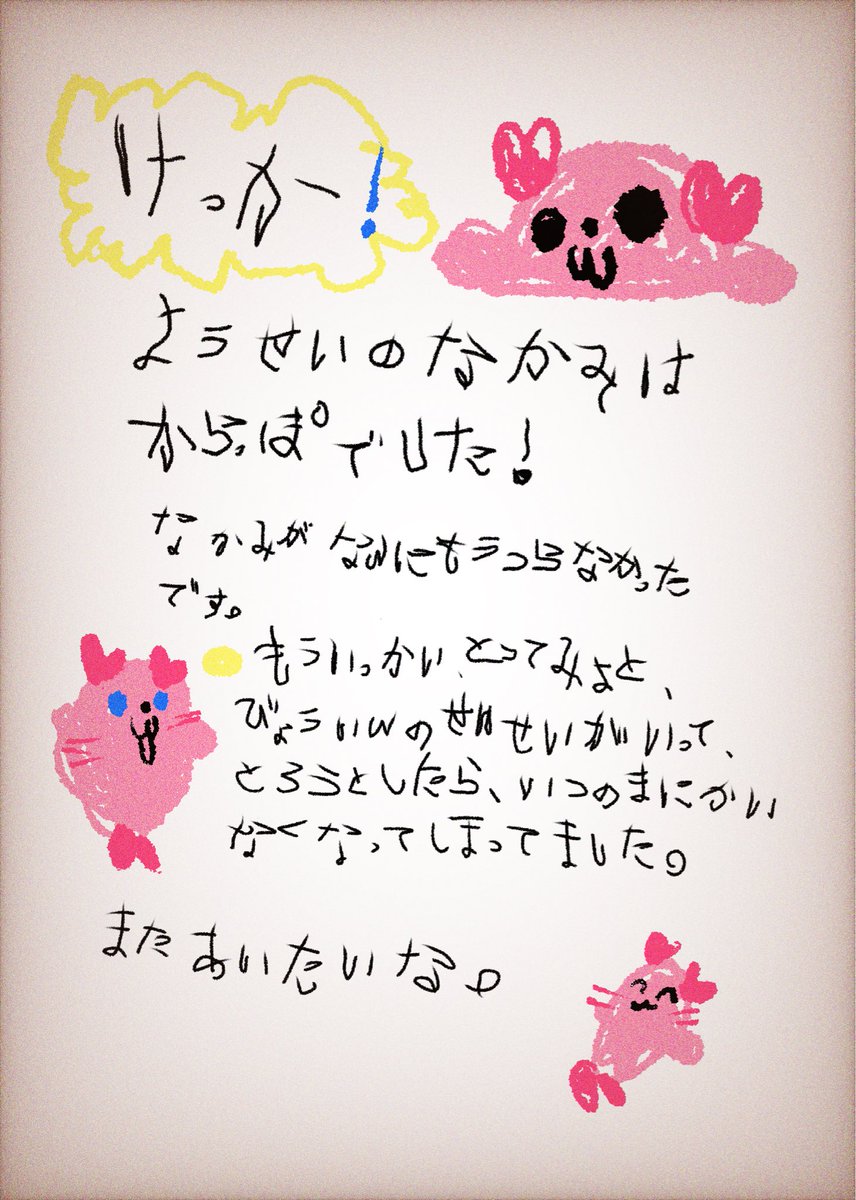 けっかー!
ようせいのなかみは
からっぽ°でした!
なかみがなんにもうつらなかった
です。
もういっかいとってみよと、
びょういんのせんせいがいって、
とろうとしたら、いつのまにかい
なくなってしまってました。
またあいたいな。